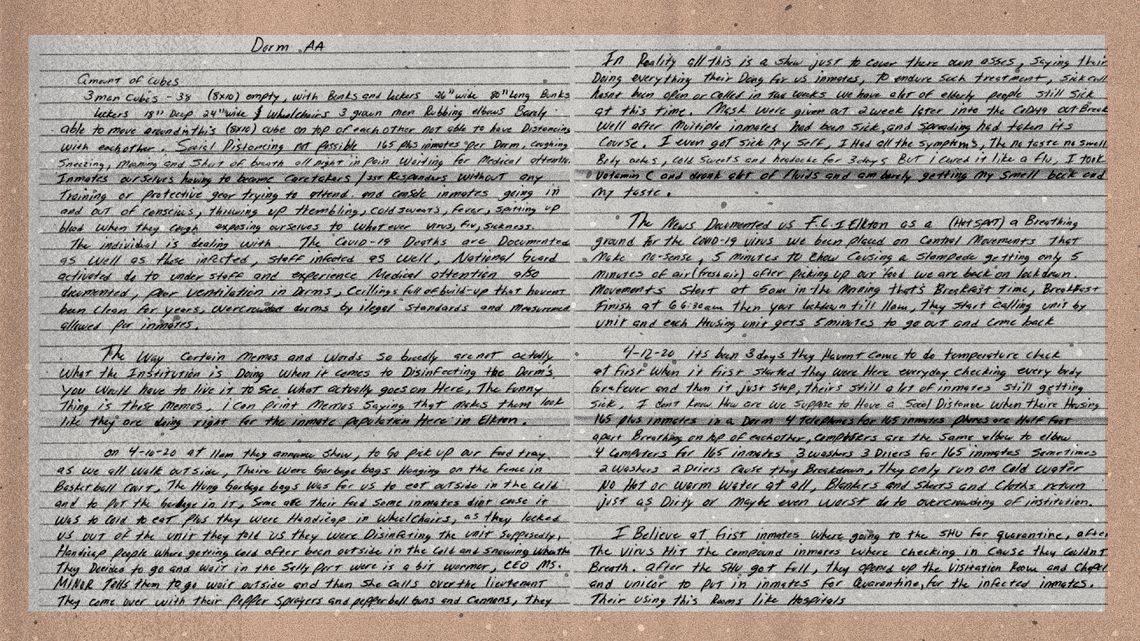 Dorm AA
Amount of cubes
3 man Cubes - 38 (8x10) empty, with Bunks and Lockers 26" wide 80" Long Bunks
Lockers 18" Deep 24" wide & Wheelchairs 3 grown men Rubbing elbows Barely
able to move around in this (8x10) cube on top of each other not able to have Distancing
with each other. Social Distancing not possible 165 plus inmates per Dorm, coughing
Sneezing, Moaning and Short of breath all night in pain Waiting for Medical attention.
Inmates ourselves having to become Caretakers / 1st Responders without any
Training or protective gear trying to attend and console inmates going in
and out of conscious, throwing up trembling, cold sweats, fever, spitting up
blood when they cough exposing ourselves to Whatever virus, flu, sickness.
The individual is dealing with. The Covid-19 Deaths are Documented
as Well as those infected, staff infected as Well, National Guard
activated do to under staff and experience Medical attention also
documented, poor ventilation in Dorms, Ceillings full of build-up that havent
been Clean for years, overcrowded dorms by ilegal standards and measurement
allowed per inmates.
The Way Certain Memos and Words So are not actually
What the Institution is Doing When it comes to Disinfecting the Dorm's,
you Would have to live it to see What actually goes on Here, The funny
Thing is these Memos, i can print Memos Saying that makes them look
like they are doing right for the inmate population Here in Elkton.
on 4-10-20 at 11am they announce Show, to Go pick up our food tray
as we all Walk outside, Theire Were Garbage bags Hanging on the Fence in
Basketball Court, The Hung Garbage bags Was for us to eat outside in the Cold
and to put the Garbage in it, Some ate their food Some inmates dint cause it
Was to cold to eat plus they Were Handicap in Wheelchairs, as they locked
us out of the unit they told us they Were Disinfecting the unit Supposedly,
Handicap people Where getting cold after been outside in the Cold and Snowing
They Decided to go and wait in the Sally port Were is a bit warmer, CEO MS.
MINOR Tells them to go wait outside and then She Calls over the lieutenant
They come over with their Pepper Sprayers and pepperball Guns and Cannons, they
In Reality all this is a show just to cover there own asses, Saying their
Doing everything their Doing for us inmates, To endure Such treatment, Sick call
hasnt been open or Called in two weeks we have alot of elderly people still Sick
at this time. Mask Were given out 2 week later into the CoD19 out Break
Well after Multiple inmates had been Sick, and Spreading had taken its
Course. I even got Sick My Self, I Had all the Symptom's, The no taste no Smell
Body aches, Cold Sweats and headache for 3 days But i cured it like a flu, I took
Vitamin C and drank alot of fluids and am barely getting My Smell back and
My taste.
The News Documented us F.C.I Elkton as a (Hot Spot) a Breathing
ground for the COVID-19 virus we been placed on Control Movements that
Make no-sense, 5 minutes to Chow Causing a Stampede getting only 5
minutes of air (fresh air) after picking up our food we are back on lockdown.
Movements Start at 6am in the Morning that's Breakfast time, Breakfast
Finish at 6:30am then your lockdown till 11am, they start calling unit by
unit and each Housing unit gets 5 minutes to go out and Come back
4-12-20 its been 3 days they Havent come to do temperature Check
at first When it first started they Were Here everyday checking every body
for a fever and then it just Stop, their's Still alot of inmates Still getting
Sick, I dont Know How are we Suppose to Have a Social Distance When theire Housing
165 plus inmates in a Dorm 4 telephones for 165 inmates phones are Half foot
apart Breathing on top of each other, Computers are the Same elbow to elbow
4 Computers for 165 inmates 3 washers 3 Driers for 165 inmates Sometimes
2 Washers 2 Driers Cause they Breakdown, They only run on Cold Water
NO Hot or Warm Water at all, Blankets and Sheets and Cloths return
just as Dirty or Maybe even worst do to overcrowding of institution.
I Believe at First inmates Where going to the SHU for quarantine, after
The virus Hit the Compound inmates Where checking in Cause they Couldn't
Breath. after the SHU got full, they opened up the Visitation Room and Chapel
and unicor to put in inmates for Quarantine, for the infected inmates.
Their using this Rooms like Hospitals